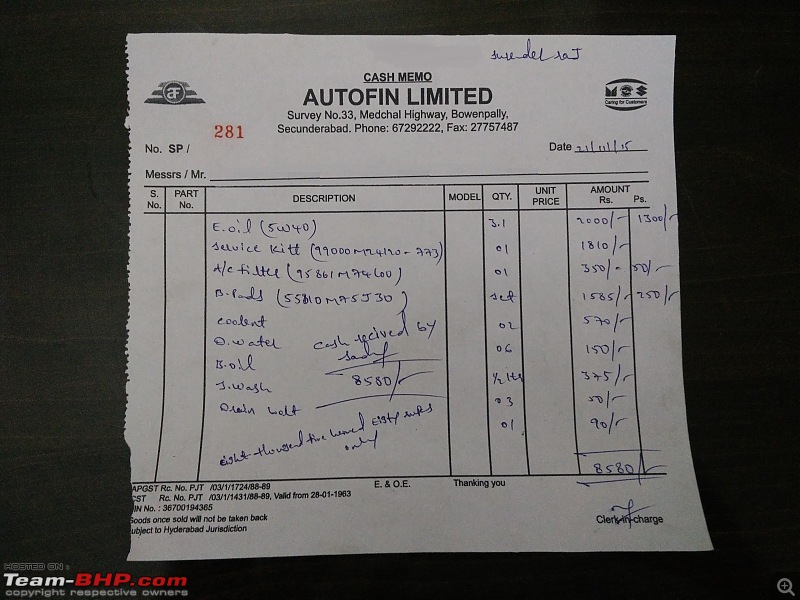 surender raJ
CASH MEMO
AF
AUTOFIN LIMITED
MGS
Caring for Customers
Survey No.33, Medchal Highway, Bowenpally,
Secunderabad. Phone: 67292222, Fax: 27757487
281
No. SP /
Date 21/11/15
Messrs / Mr.
S. No. PART No. DESCRIPTION MODEL QTY. UNIT PRICE AMOUNT Rs. Ps.
E.oil (5W40) 3.1 2000/- 1300/-
Service Kitt (99000M24120-773) 01 1810/-
A/C filter (95861M74L00) 01 350/- 50/-
B.Pads (55810M75J30) set 1585/- 250/-
coolent 02 570/-
D.water 06 150/-
B.oil 1/2 lts 375/-
J.wash 03 50/-
Drain bolt 01 90/-
cash recived by
8580/-
Eight thousand five hundred eighty only
8580/-
APGST Rc. No. PJT /03/1/1724/88-89 E. & O.E. Thanking you
CST Rc. No. PJT /03/1/1431/88-89, Valid from 28-01-1963
IN No. : 36700194365
Goods once sold will not be taken back
ubject to Hyderabad Jurisdiction
Clerk-in-charge
HOSTED ON :
Team-BHP.com
copyright respective owners